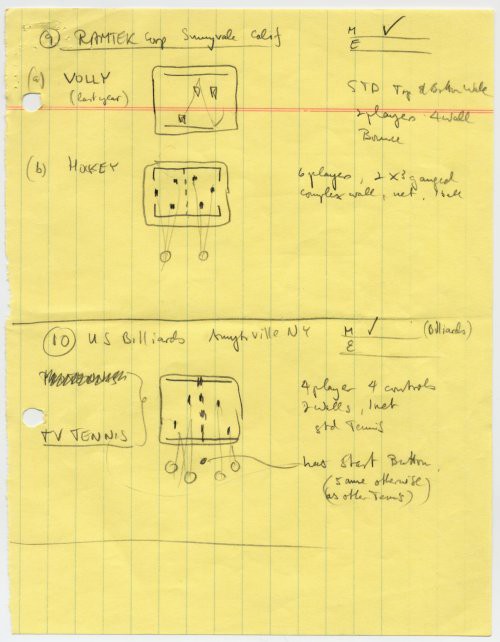 (9) RAMTEK Corp Sunnyvale Calif
M ✓
E
(a) VOLLY
(last year)
STD Top & Button Walls
2 players 4 wall
Bounce
(b) HOKEY
6 players, 2 x 3 ganged
complex wall, net, 1 ball
(10) US Billiards Amytiville NY
M ✓ (Billiards)
E
TV TENNIS
4 player 4 controls
2 walls, 1 net
std Tennis
has Start Button,
(same otherwise
as other Tennis)